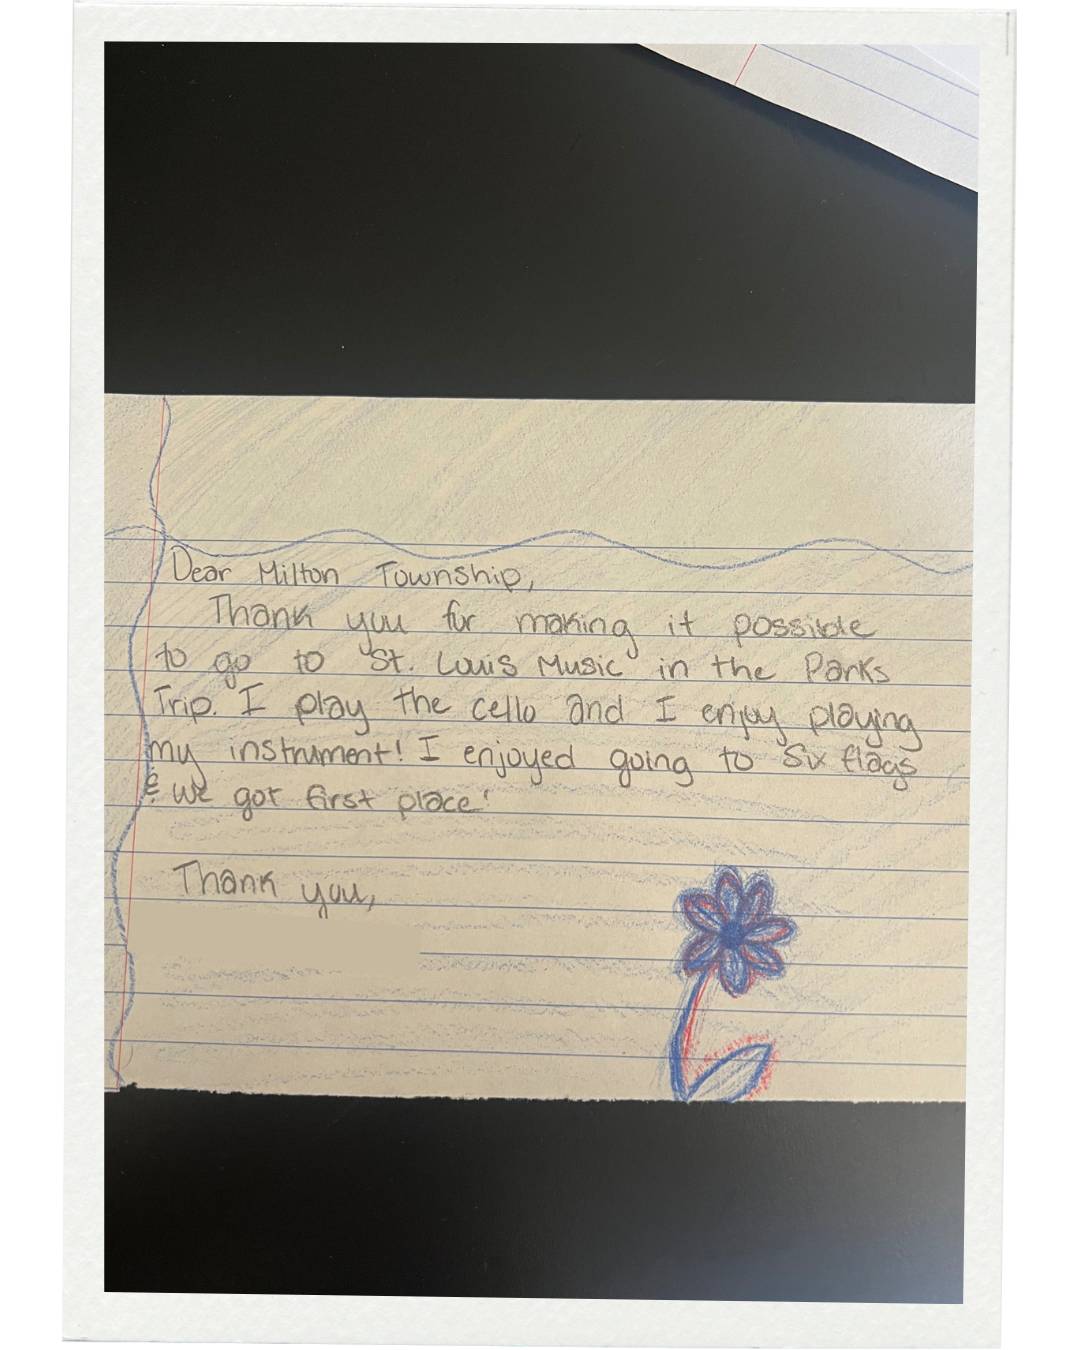 Dear Milton Township,
Thank you for making it possible
to go to St. Louis Music in the Parks
Trip. I play the cello and I enjoy playing
my instrument! I enjoyed going to Six flags
& we got first place!
Thank you,